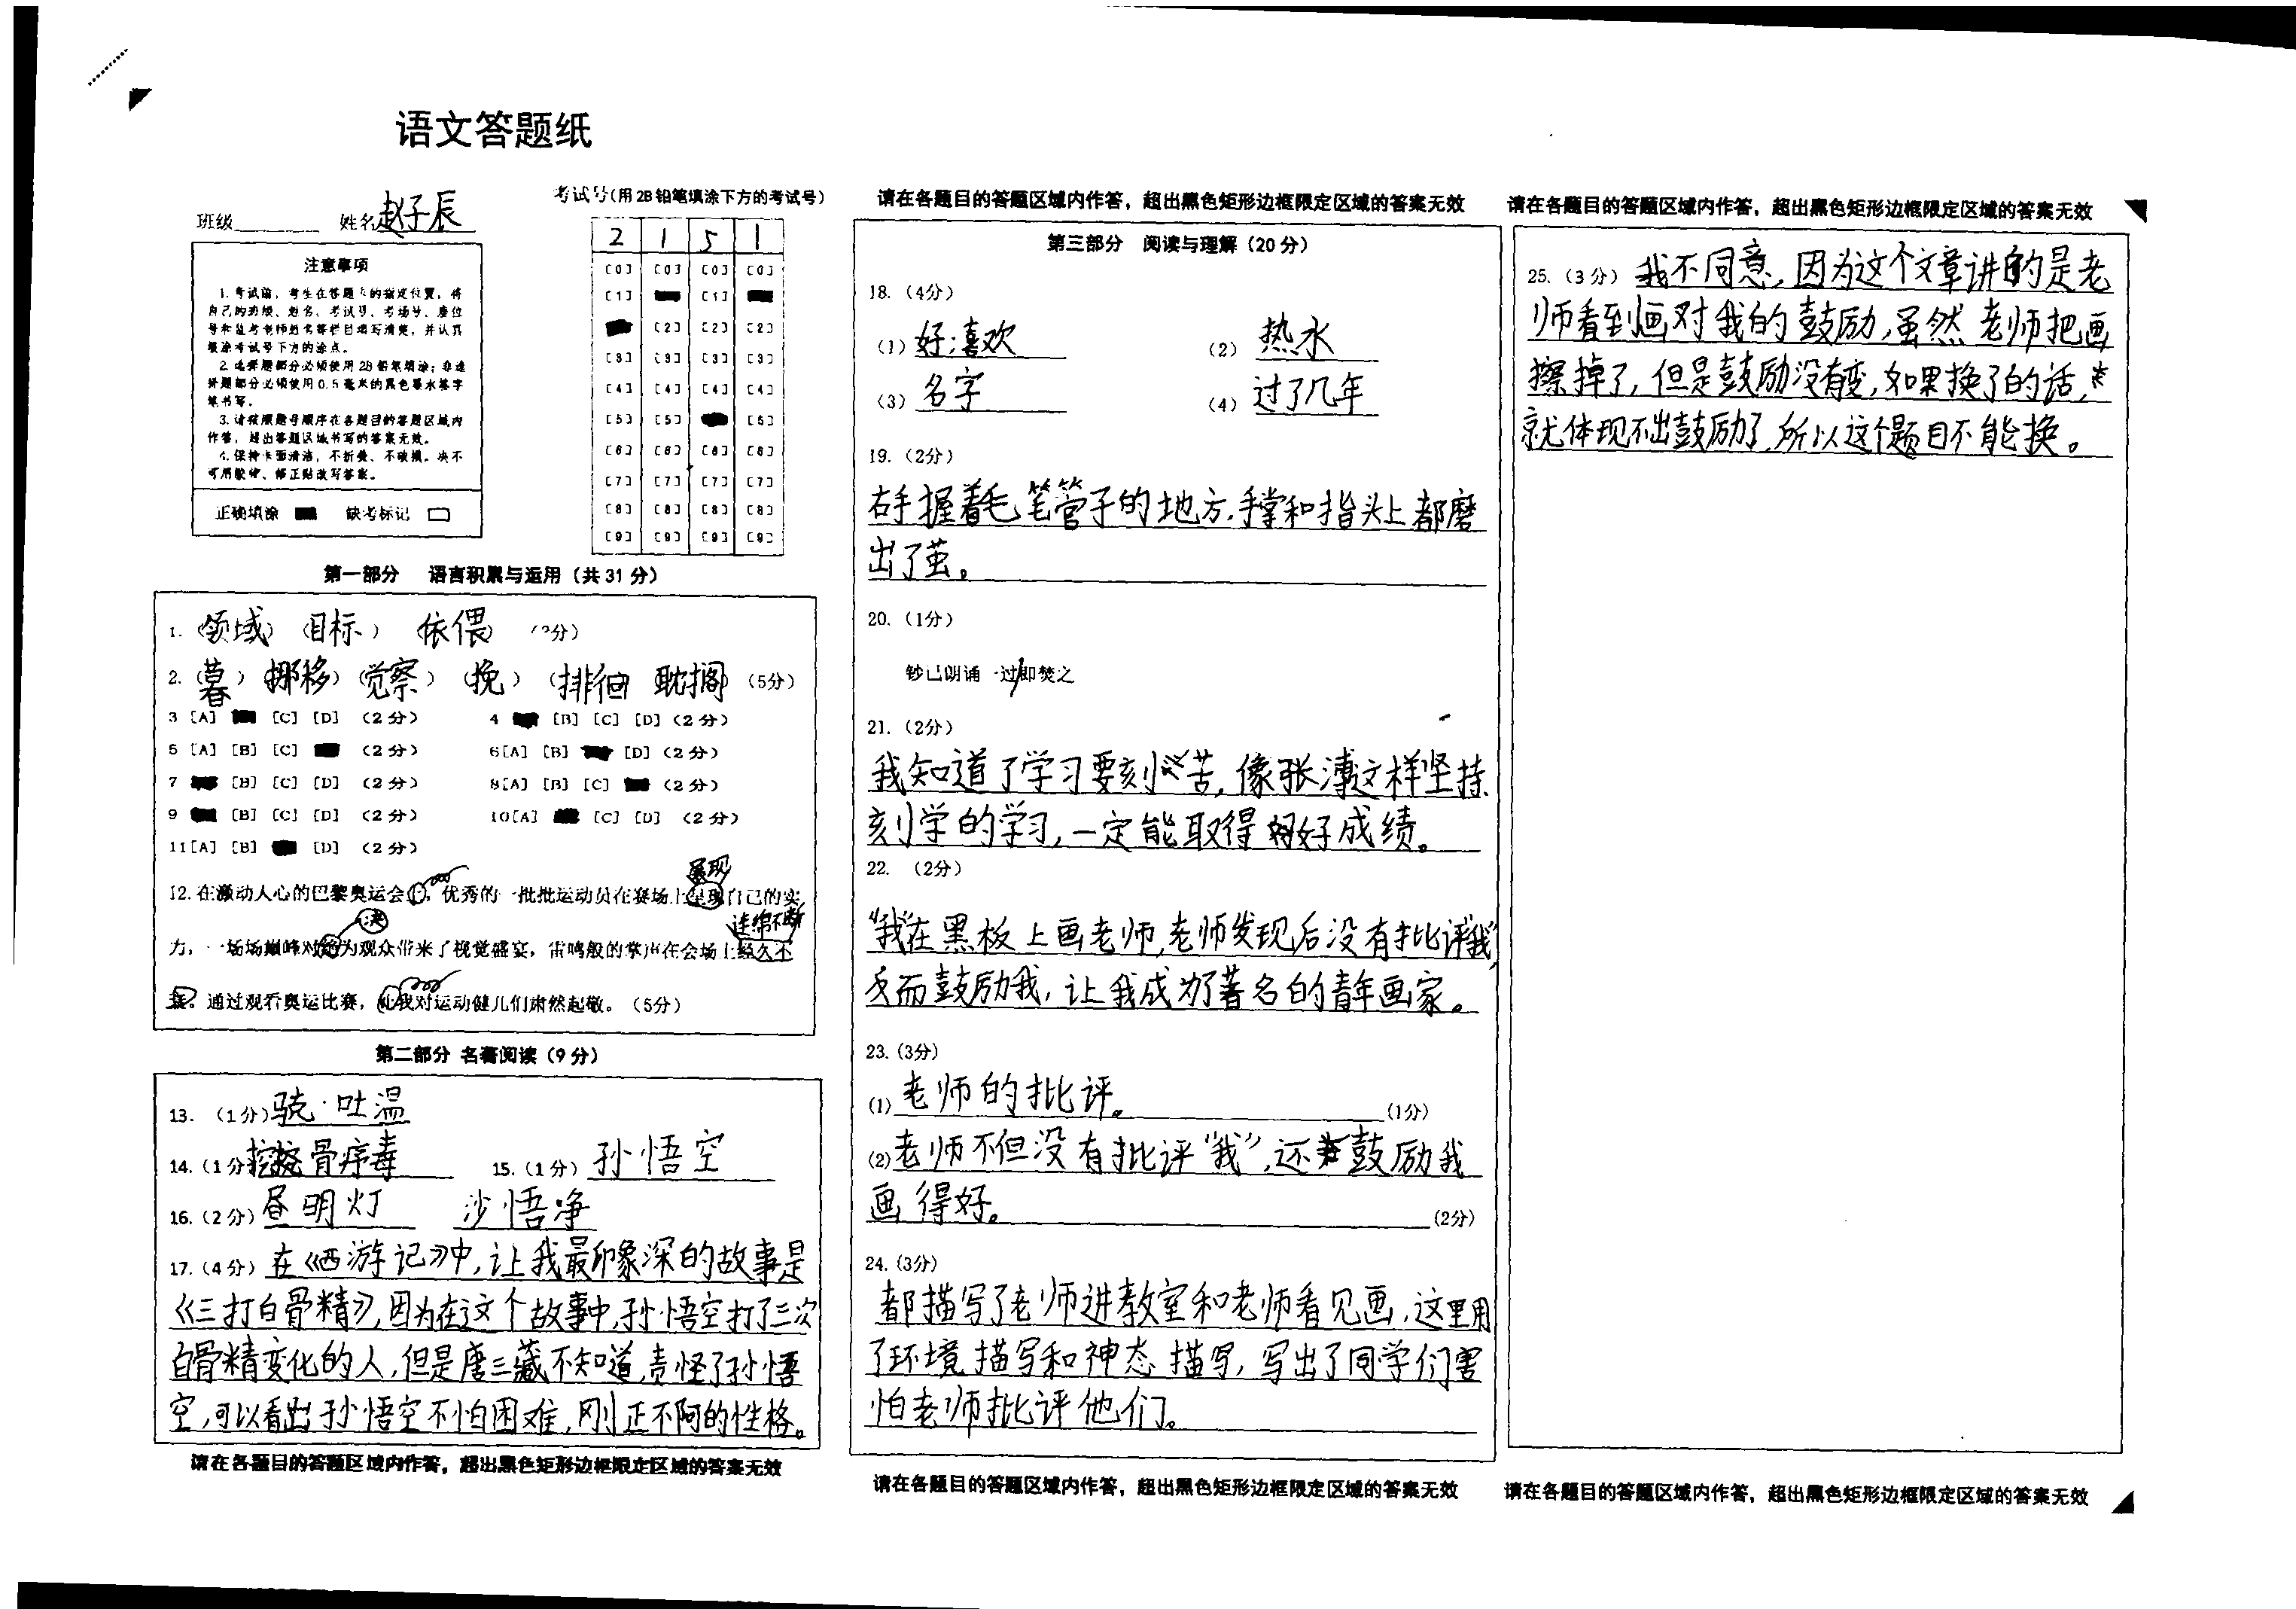 语文答题纸
班级 姓名 赵子辰
考试号(用2B铅笔填涂下方的考试号)
2 1 5 1
[0] [0] [0] [0]
[1] [1]
[2] [2] [2]
[3] [3] [3] [3]
[4] [4] [4] [4]
[5] [5] [5]
[6] [6] [6] [6]
[7] [7] [7] [7]
[8] [8] [8] [8]
[9] [9] [9] [9]
注意事项
1. 考试前，考生在答题卡的指定位置，将
自己的班级、姓名、考试号、考场号、座位
号和监考老师姓名等栏目填写清楚，并认真
填涂考试号下方的涂点。
2. 选择题部分必须使用2B铅笔填涂；非选
择题部分必须使用0.5毫米的黑色墨水签字
笔书写。
3. 请按照题号顺序在各题目的答题区域内
作答，超出答题区域书写的答案无效。
4. 保持卡面清洁，不折叠、不破损。决不
可用胶带、修正贴改写答案。
正确填涂 缺考标记
第一部分 语言积累与运用（共31分）
1. （领域）（目标）（依偎）
2. （暮）（挪移）（觉察）（挽）（徘徊 耽搁）（5分）
3 [A] [C] [D] （2分） 4 [B] [C] [D]（2分）
5 [A] [B] [C] （2分） 6[A] [B] [D]（2分）
7 [B] [C] [D] （2分） 8[A] [B] [C] （2分）
9 [B] [C] [D] （2分） 10[A] [C] [D] （2分）
11[A] [B] [D] （2分）
展现
12. 在激动人心的巴黎奥运会上，优秀的一批批运动员在赛场上呈现自己的实
决 连绵不断
力，一场场巅峰对决为观众带来了视觉盛宴，雷鸣般的掌声在会场上经久不
息。通过观看奥运比赛，让我对运动健儿们肃然起敬。（5分）
第二部分 名著阅读（9分）
13. （1分）骁·吐温
14. （1分） 骨疗毒 15. （1分）孙悟空
16. （2分）昼明灯 沙悟净
17. （4分）在《西游记》中，让我最印象深的故事是
《三打白骨精》，因为在这个故事中，孙悟空打了三次
白骨精变化的人，但是唐三藏不知道，责怪了孙悟
空，可以看出孙悟空不怕困难，刚正不阿的性格。
请在各题目的答题区域内作答，超出黑色矩形边框限定区域的答案无效
请在各题目的答题区域内作答，超出黑色矩形边框限定区域的答案无效
第三部分 阅读与理解（20分）
18. （4分）
（1）好；喜欢 （2）热水
（3）名字 （4）过了几年
19. （2分）
右手握着毛笔管子的地方，手掌和指头上都磨
出了茧。
20. （1分）
钞已朗诵一过/即焚之
21. （2分）
我知道了学习要刻苦，像张溥这样坚持
刻学的学习，一定能取得好成绩。
22. （2分）
“我”在黑板上画老师，老师发现后没有批评“我”，
反而鼓励我，让我成为了著名的青年画家。
23. （3分）
（1）老师的批评。（1分）
（2）老师不但没有批评“我”，还鼓励我
画得好。（2分）
24. （3分）
都描写了老师进教室和老师看见画，这里用
了环境描写和神态描写，写出了同学们害
怕老师批评他们。
请在各题目的答题区域内作答，超出黑色矩形边框限定区域的答案无效
请在各题目的答题区域内作答，超出黑色矩形边框限定区域的答案无效
25. （3分）我不同意，因为这个文章讲的是老
师看到画对我的鼓励，虽然老师把画
擦掉了，但是鼓励没有变，如果换了的话，
就体现不出鼓励了，所以这个题目不能换。
请在各题目的答题区域内作答，超出黑色矩形边框限定区域的答案无效